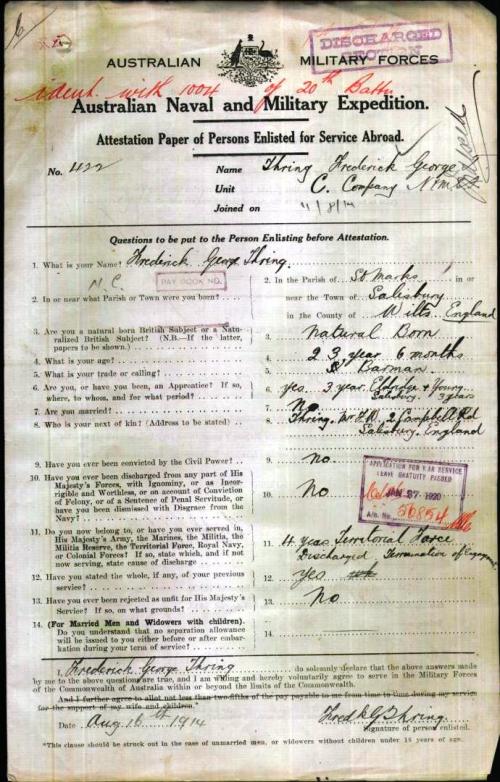 6
DISCHARGED
SECTION
AUSTRALIAN MILITARY FORCES
ident. with 1004 of 20th Battn
Australian Naval and Military Expedition.
Attestation Paper of Persons Enlisted for Service Abroad.
No. 422
Name Thring Frederick George
Unit C. Company
Joined on /8/14
Questions to be put to the Person Enlisting before Attestation.
1. What is your Name? Frederick George Thring.
N.C. PAY BOOK NO.
2. In or near what Parish or Town were you born? ....
2. In the Parish of St Marks in or
near the Town of Salisbury
in the County of Wilts, England
3. Are you a natural born British Subject or a Natu-
ralized British Subject? (N.B.—If the latter,
papers to be shown.)
3. Natural Born
4. What is your age?
4. 23 year 6 months
5. What is your trade or calling?
5. Barman.
6. Are you, or have you been, an Apprentice? If so,
where, to whom, and for what period?
6. yes. 3 year. Eldridge & Young
Salisbury. 3 years
7. Are you married?
7. No
8. Who is your next of kin? (Address to be stated)
8. Thring. Mr 2 Campbell Rd
Salisbury. England
9. Have you ever been convicted by the Civil Power?
9. no
10. Have you ever been discharged from any part of His
Majesty's Forces, with Ignominy, or as Incor-
rigible and Worthless, or on account of Conviction
of Felony, or of a Sentence of Penal Servitude, or
have you been dismissed with Disgrace from the
Navy?
10. No
APPLICATION FOR WAR SERVICE
LEAVE GRATUITY PASSED
JAN 27 1920
A/c. No. 56854
11. Do you now belong to, or have you ever served in,
His Majesty's Army, the Marines, the Militia,
the Militia Reserve, the Territorial Force, Royal Navy,
or Colonial Forces? If so, state which, and if not
now serving, state cause of discharge
11. 4 years Territorial Force
Discharged Termination of Engagement
12. Have you stated the whole, if any, of your previous
service?
12. yes
13. Have you ever been rejected as unfit for His Majesty's
Service? If so, on what grounds?
13. No
14. (For Married Men and Widowers with children).
Do you understand that no separation allowance
will be issued to you either before or after embar-
kation during your term of service?
14.
I, Frederick George Thring do solemnly declare that the above answers made
by me to the above questions are true, and I am willing and hereby voluntarily agree to serve in the Military Forces
of the Commonwealth of Australia within or beyond the limits of the Commonwealth.
And I further agree to allot not less than two-fifths of the pay payable to me from time to time during my service
for the support of my wife and children.*
Date Aug 16th 1914
Fredk G Thring
Signature of person enlisted.
*This clause should be struck out in the case of unmarried men, or widowers without children under 18 years of age.